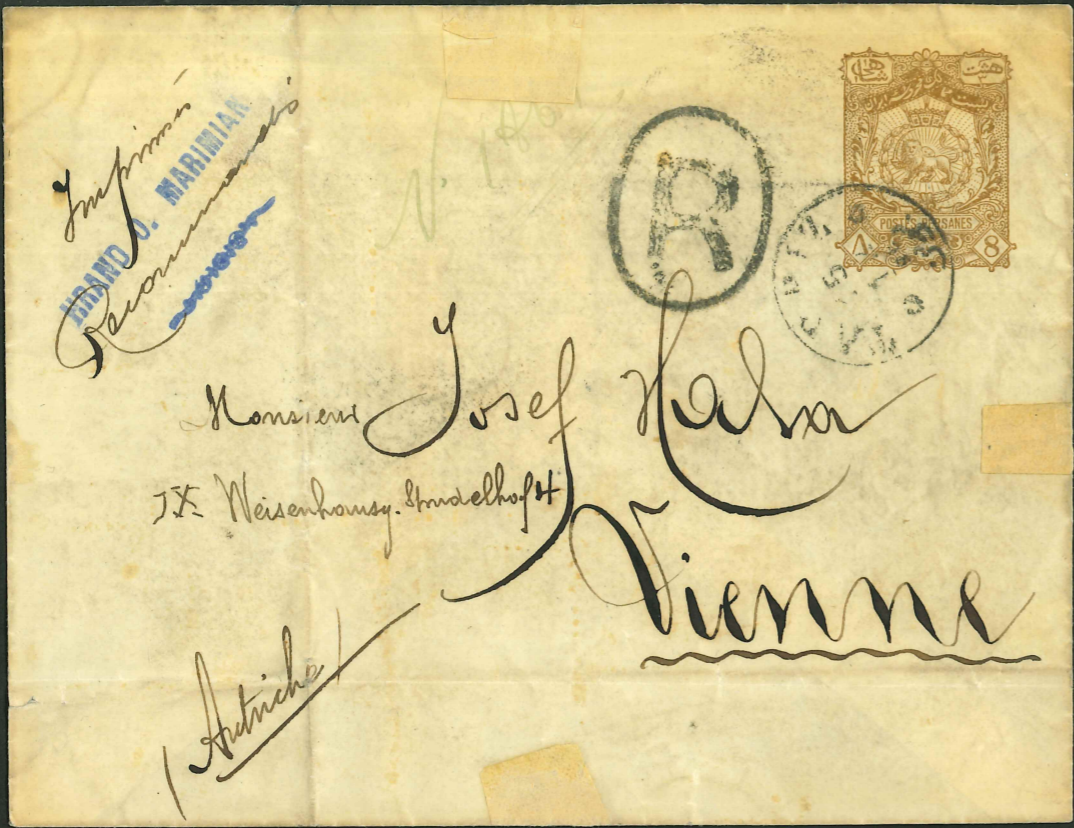 Imprimés
HRAND O. MARIMIAN
Recommandés
N. 180
R
هشت
شاهی
POSTES PERSANES
٨ 8
Monsieur Josef Halva
IX Weisenhausg. Strudelhof 4
Vienne
(Autriche)